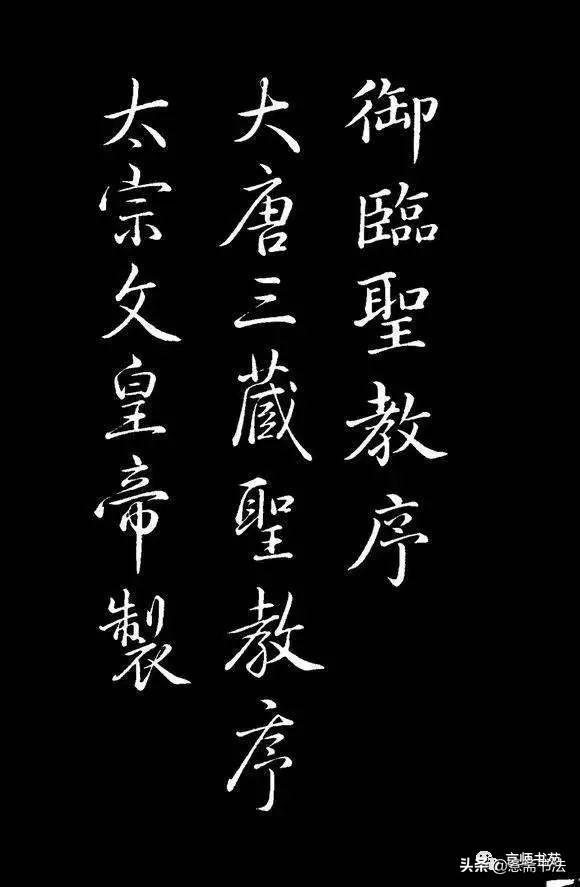 御臨聖教序
大唐三藏聖教序
太宗文皇帝製
京师书苑
头条@意斋书法